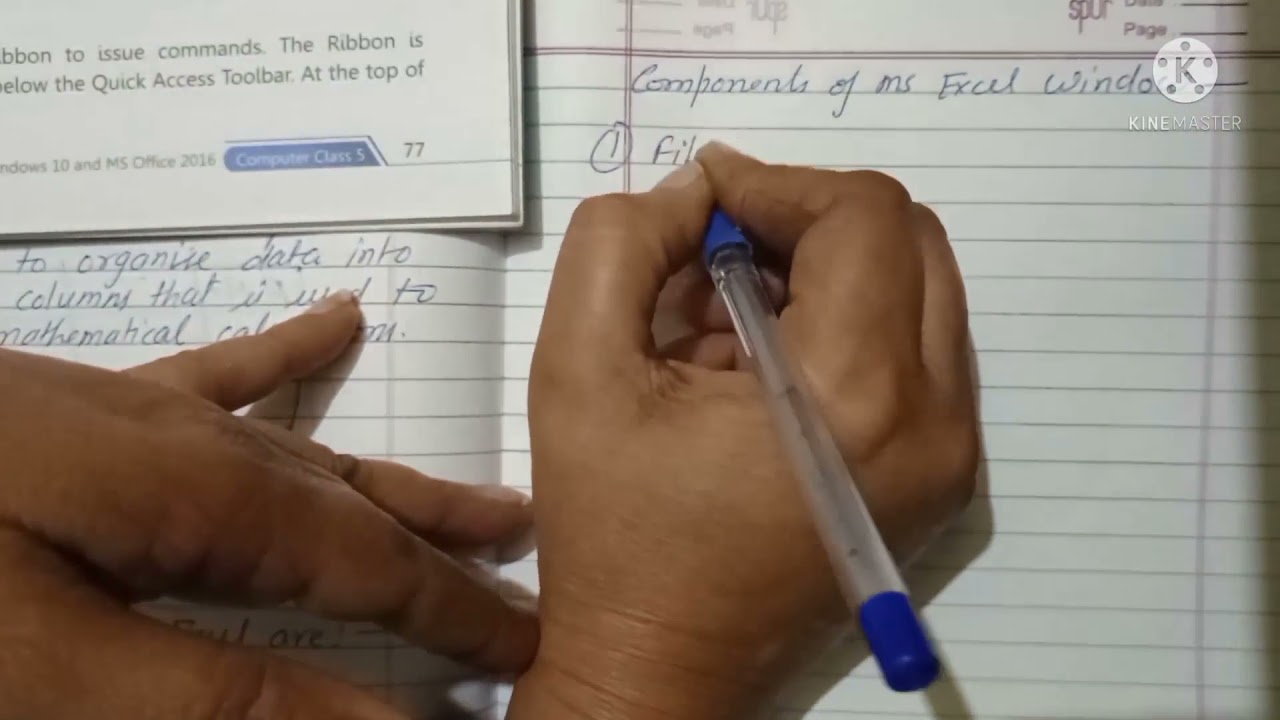 bbon to issue commands. The Ribbon is
elow the Quick Access Toolbar. At the top of
ndows 10 and MS Office 2016 Computer Class 5 77
to organise data into
columns that is used to
mathematical
are
Spur Date
Page
Components of ms Excel Windo
① Fil
KINEMASTER